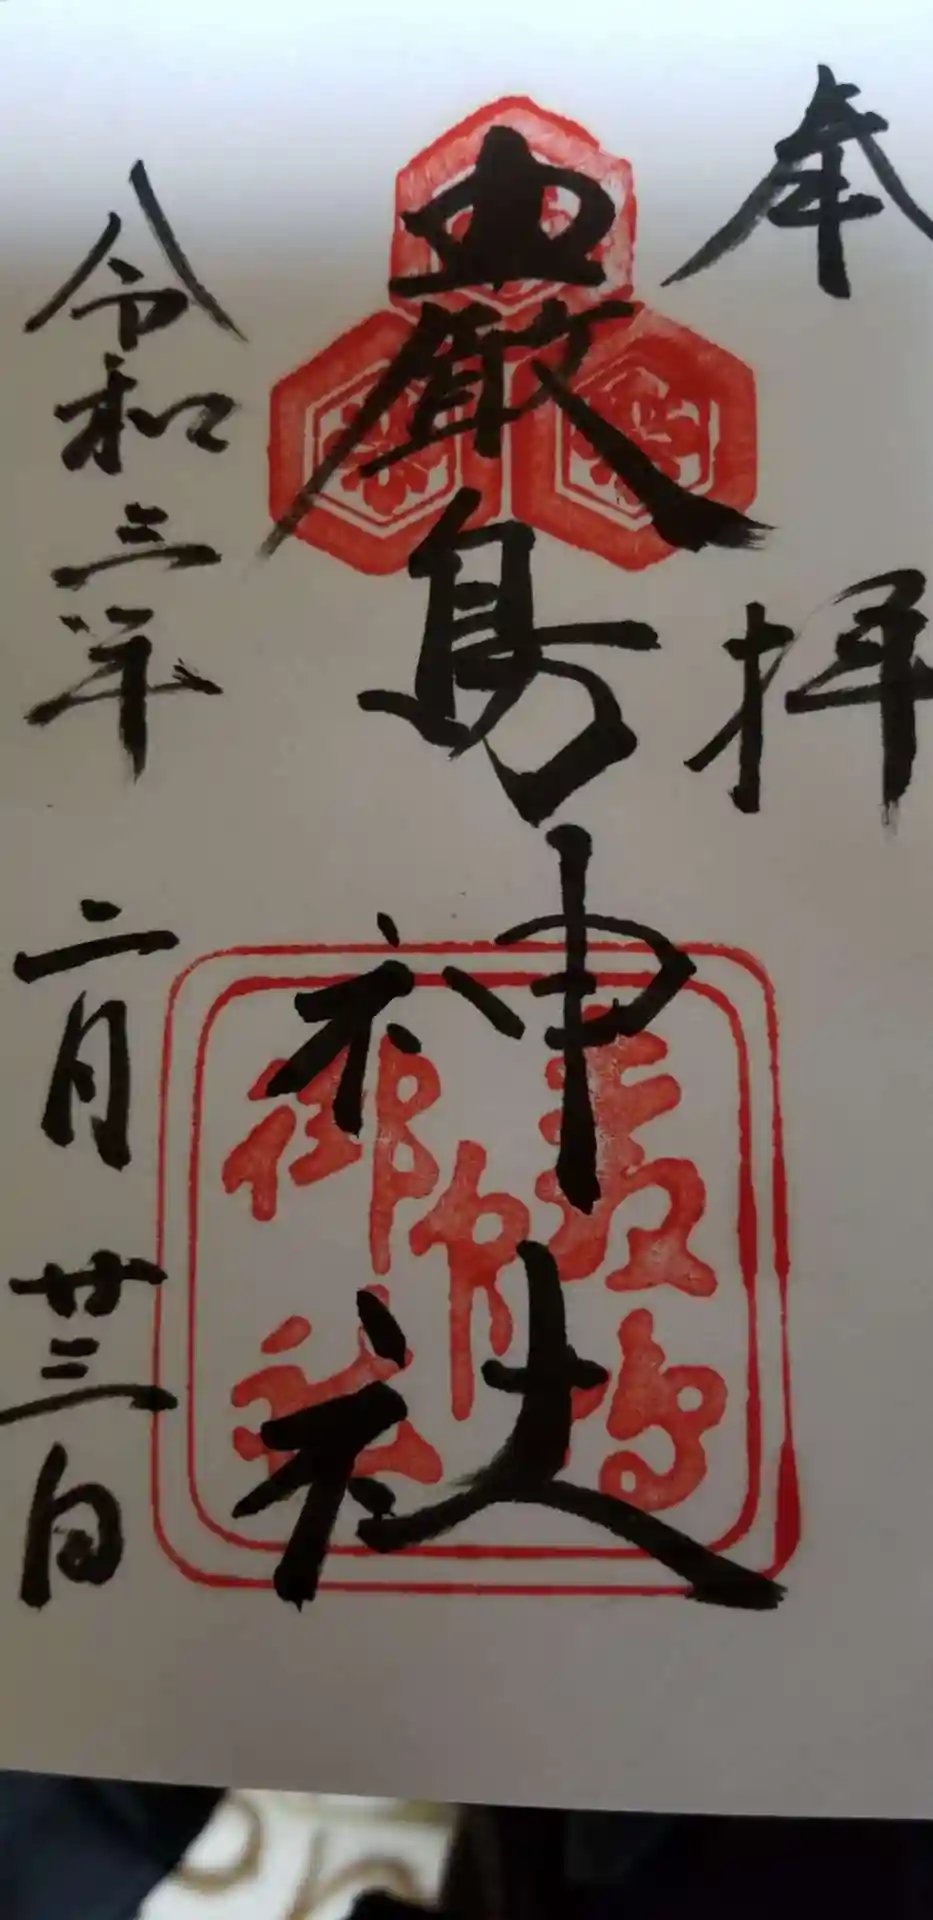 奉拝
厳島神社
嚴島
御印
社
令和三年二月廿三日